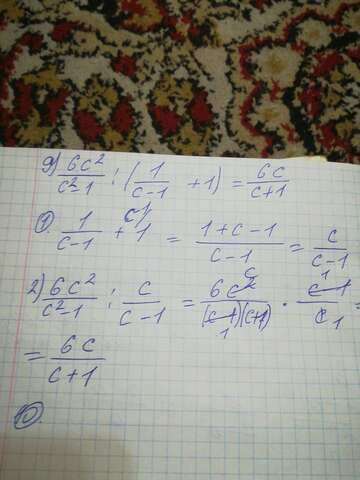 9) 6c²/(c²-1) : (1/(c-1) + 1) = 6c/(c+1)
①. 1/(c-1) + 1 (c-1 = (1+c-1)/(c-1) = c/(c-1)
2) 6c²/(c²-1) : c/(c-1) = 6c²/((c-1)(c+1)) · (c-1)/c =
= 6c/(c+1)
⑩